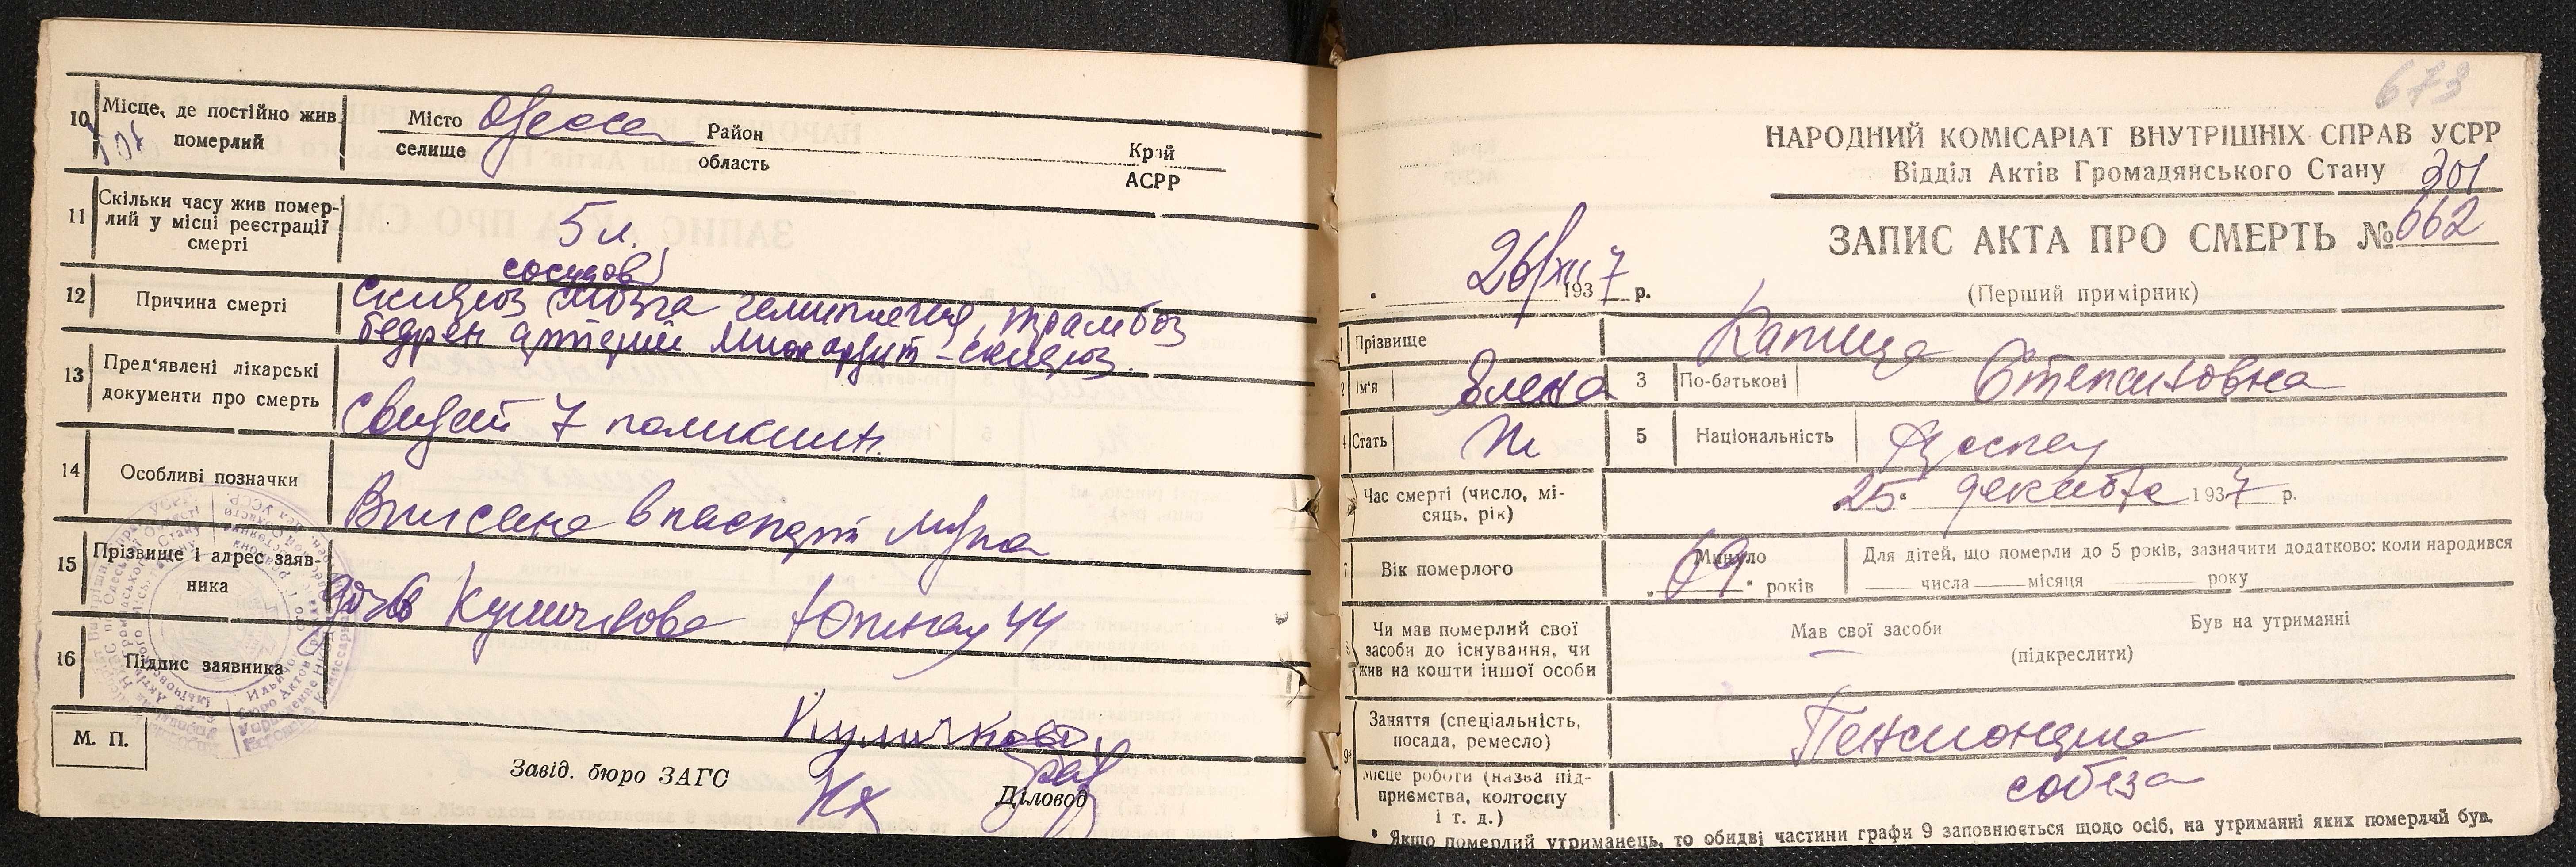 10 Місце, де постійно жив померлий
Місто селище Одесса Район область Край АСРР
11 Скільки часу жив помер-
лий у місці реєстрації
смерті
5 л.
12 Причина смерті
сосудов
Склероз мозга гемиплегия, тромбоз
бедрен артерии Миокардит-склероз.
13 Пред'явлені лікарські
документи про смерть
Свидет 7 поликлин.
14 Особливі позначки
Вписана в паспорт мужа
15 Прізвище і адрес заяв-
ника
дочь Куличкова 44
16 Підпис заявника
Куличкова
М. П.
Завід. бюро ЗАГС
Діловод
673
НАРОДНИЙ КОМІСАРІАТ ВНУТРІШНІХ СПРАВ УСРР
Відділ Актів Громадянського Стану
301
ЗАПИС АКТА ПРО СМЕРТЬ № 662
26/XII 1937 р.
(Перший примірник)
1 Прізвище Капица
2 Ім'я Елена 3 По-батькові Степановна
4 Стать ж 5 Національність
Час смерті (число, мі-
сяць, рік)
25 декабря 1937 р.
7 Вік померлого
Минуло 69 років
Для дітей, що померли до 5 років, зазначити додатково: коли народився
числа місяця року
Чи мав померлий свої
засоби до існування, чи
жив на кошти іншої особи
Мав свої засоби Був на утриманні
(підкреслити)
9* Заняття (спеціальність,
посада, ремесло)
Пенсионерка
Місце роботи (назва під-
приємства, колгоспу
і т. д.)
собеза
* Якщо померлий утриманець, то обидві частини графи 9 заповнюється щодо осіб, на утриманні яких померлий був.